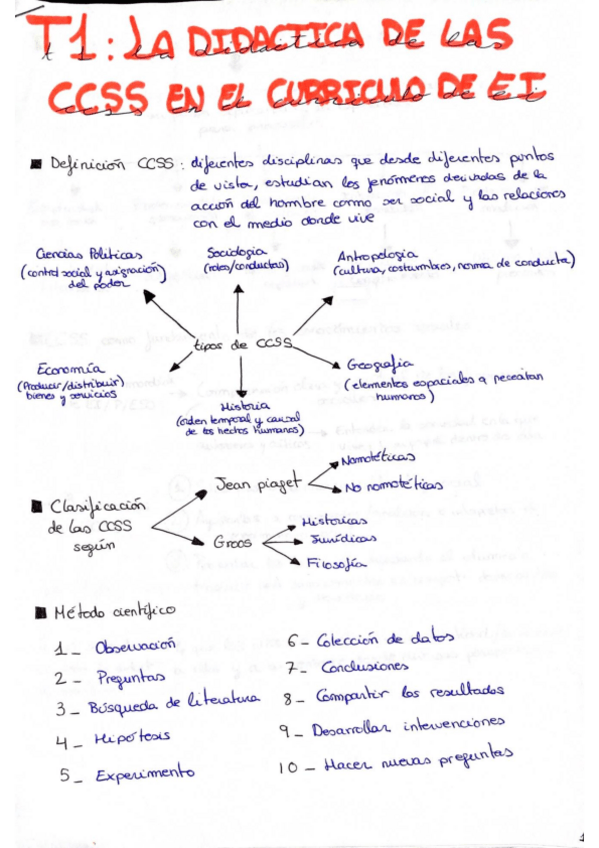 T1: LA DIDACTICA DE LAS
CCSS EN EL CURRICULO DE EI
t 1 la didactica de las
ccss en el curriculo de ei
Definición CCSS: diferentes disciplinas que desde diferentes puntos
de vista, estudian los fenómenos derivados de la
acción del hombre como ser social y las relaciones
con el medio donde vive
Ciencias Políticas
(control social y asignación)
del poder
Sociología
(roles/conductas)
Antropología
(cultura, costumbres, norma de conducta)
tipos de CCSS
Economía
(Producir/distribuir)
bienes y servicios
Historia
(orden temporal y causal
de los hechos humanos)
Geografía
(elementos espaciales q necesitan
humanos)
Clasificación
de las CCSS
según
Jean piaget
Nomotéticas
No nomotéticas
Groos
Históricas
Jurídicas
Filosofía
Método científico
1_ Observación
2_ Preguntas
3_ Búsqueda de literatura
4_ Hipótesis
5_ Experimento
6- Colección de datos
7- Conclusiones
8- Compartir los resultados
9_ Desarrollar intervenciones
10_ Hacer nuevas preguntas
1